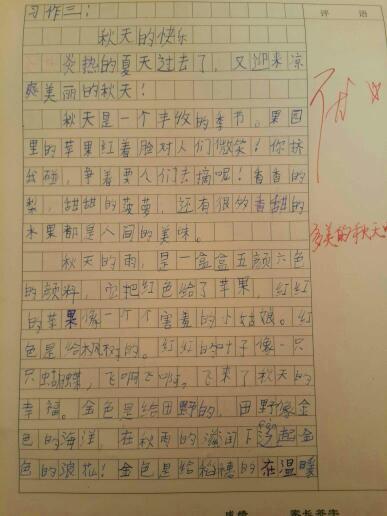 习作三：
评语
秋天的快乐
炎热的夏天过去了，又迎来凉
爽美丽的秋天！
秋天是一个丰收的季节。果园
里的苹果红着脸对人们微笑！你挤
我碰，争着要人们去摘呢！香香的
梨，甜甜的菠萝，还有很多香甜的
水果都是人间的美味。
多美的秋天
秋天的雨，是一盒盒五颜六色
的颜料，它把红色给了苹果，红红
的苹果像一个个害羞的小姑娘。红
色是给枫树的。红红的叶子像一只
只蝴蝶，飞啊飞啊，飞来了秋天的
幸福。金色是给田野的，田野像金
色的海洋，在秋雨的滋润下泛起金
色的浪花！金色是给稻穗的在温暖